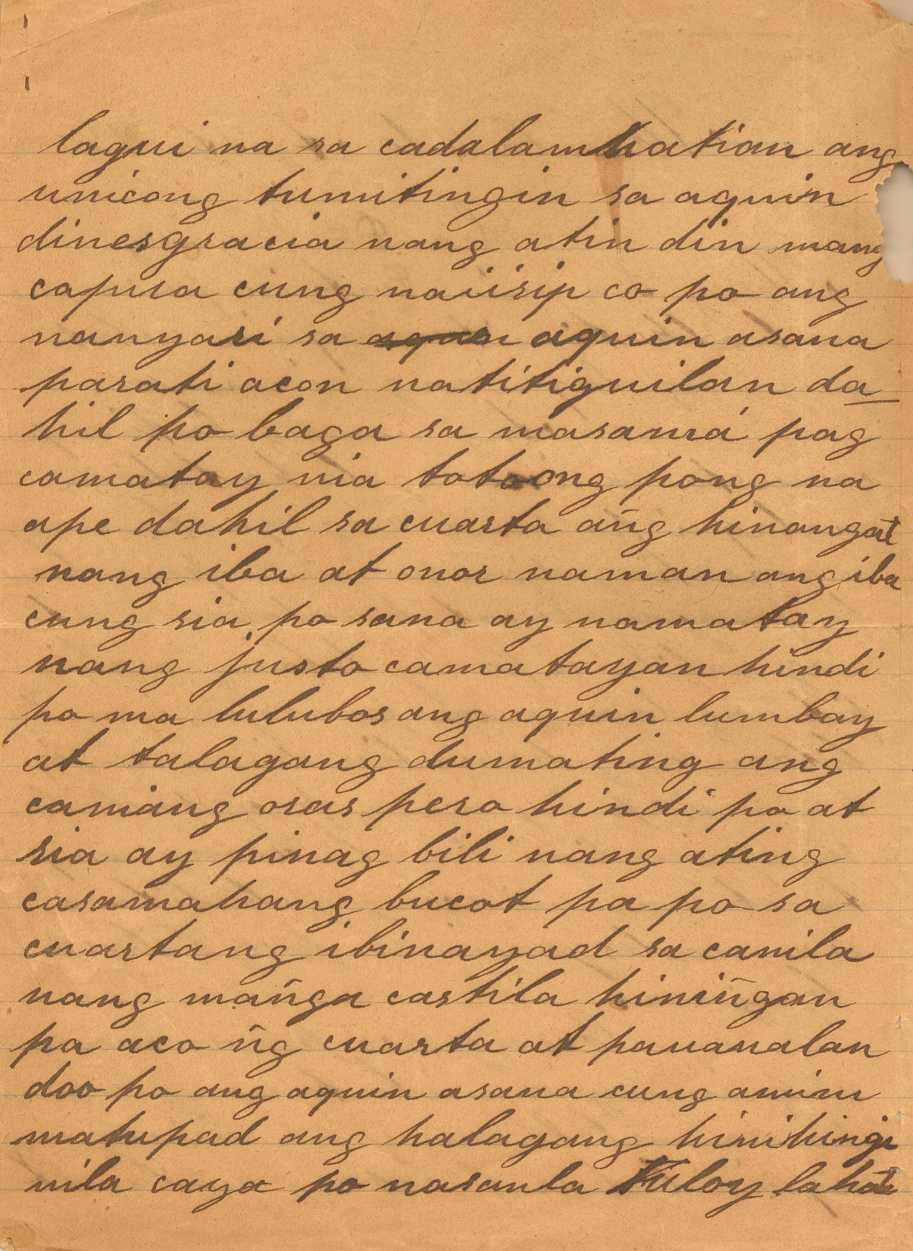 lagui na sa cadalamhatian ang
unicong tumitingin sa aquin
dinesgracia nang atin din mang
capua cung naiisip co po ang
nanyari sa aquin asaua
parati acon natitiguilan da
hil po baga sa masamá pag
camatay nia totoong pong na
ape dahil sa cuarta añg hinangat
nang iba at onor naman ang iba
cung sia po sana ay namatay
nang justo camatayan hindi
po ma lulubos ang aquin lumbay
at talagang dumating ang
caniang oras pero hindi po at
sia ay pinag bili nang ating
casamahang bucot pa po sa
cuartang ibinayad sa canila
nang mañga castila hiniñgan
pa aco ñg cuarta at pananalan
doo po ang aquin asaua cung amin
matupad ang halagang hinihingi
nila caya po nasanla Tuloy lahat